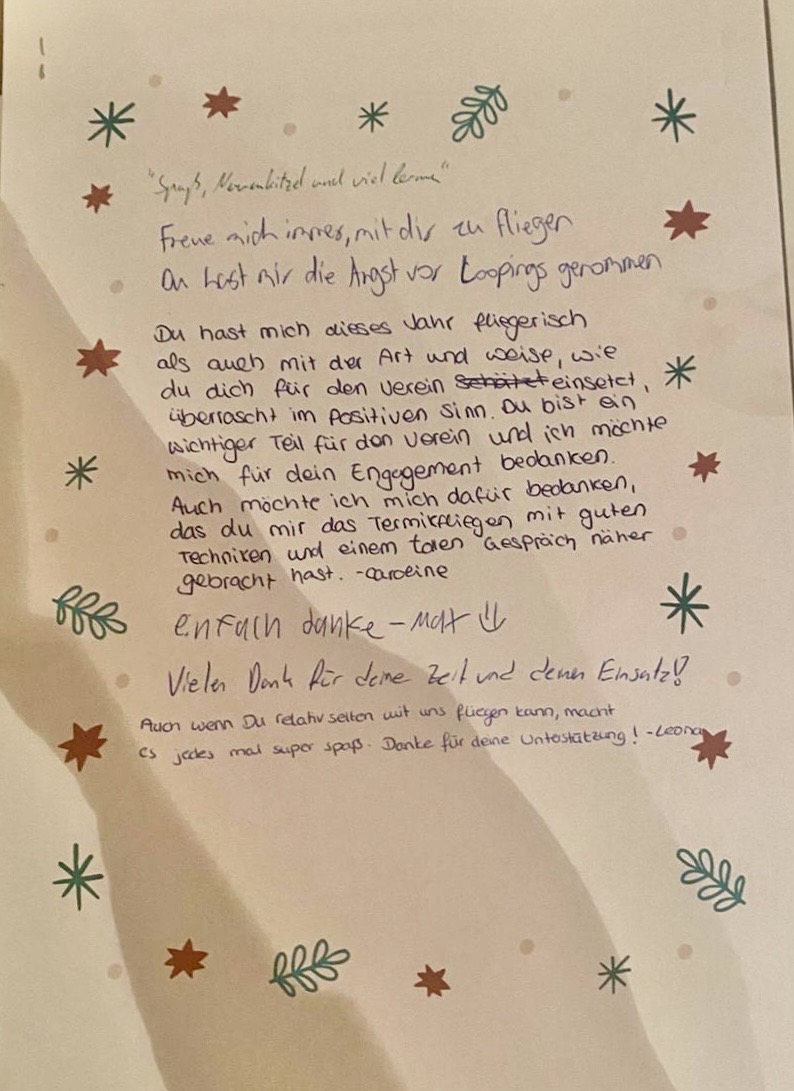 "Spaß, Nervenkitzel und viel lernen"
Freue mich immer, mit dir zu fliegen
Du hast mir die Angst vor Loopings genommen
Du hast mich dieses Jahr fliegerisch
als auch mit der Art und weise, wie
du dich für den Verein einsetzt,
überrascht im Positiven Sinn. Du bist ein
wichtiger Teil für den Verein und ich möchte
mich für dein Engagement bedanken.
Auch möchte ich mich dafür bedanken,
das du mir das Termikfliegen mit guten
Techniken und einem tollen Gespräch näher
gebracht hast. -Caroline
einfach danke - Max
Vielen Dank für deine Zeit und deinen Einsatz!
Auch wenn Du relativ selten mit uns fliegen kann, macht
es jedes mal super spaß. Danke für deine Unterstützung! -Leona